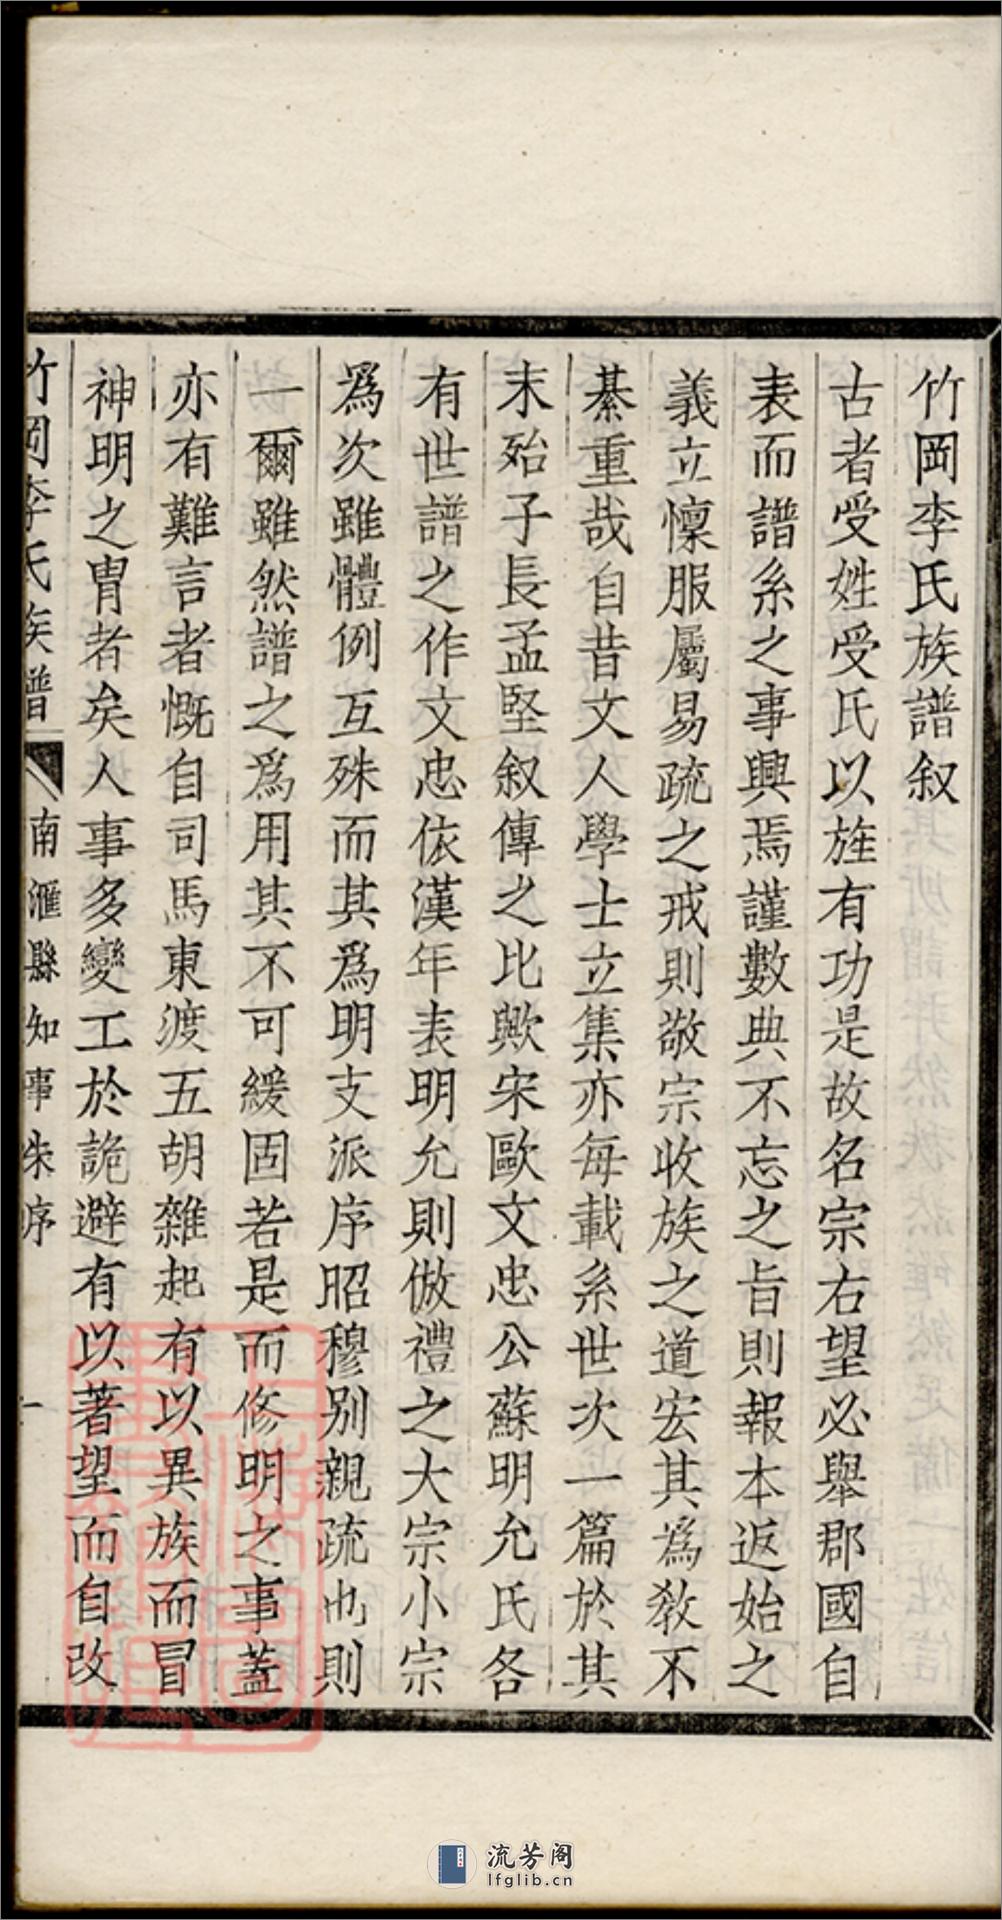 竹岡李氏族譜叙
古者受姓受氏以旌有功是故名宗右望必舉郡國自
表而譜系之事興焉謹數典不忘之旨則報本返始之
義立懍服屬易疏之戒則敬宗收族之道宏其爲教不
綦重哉自昔文人學士立集亦每載系世次一篇於其
末殆子長孟堅叙傳之比歟宋歐文忠公蘇明允氏各
有世譜之作文忠依漢年表明允則倣禮之大宗小宗
爲次雖體例互殊而其爲明支派序昭穆別親疏也則
一爾雖然譜之爲用其不可緩固若是而修明之事蓋
亦有難言者慨自司馬東渡五胡雜起有以異族而冒
神明之胄者矣人事多變工於詭避有以著望而自改
竹岡李氏族譜
南滙縣知事朱序
一
流芳阁
lfglib.cn